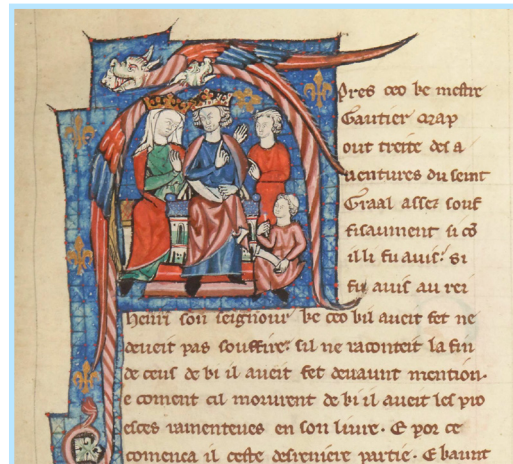 Pres ceo ke mestre
Gautier map
out treite des a
uentures du seint
Graal assez souf
fisaument si cō
il li fu auis: si
fu auis au rei
henri son seignour ke ceo kil aueit fet ne
deueit pas souffire: sil ne raconteit la fin
de ceus de ki il aueit fet deuaunt mention.
e coment cil morurent de ki il aueit les pro
esces ramenteues en son liure. E por ce
comenca il ceste desreniere partie. E kaunt